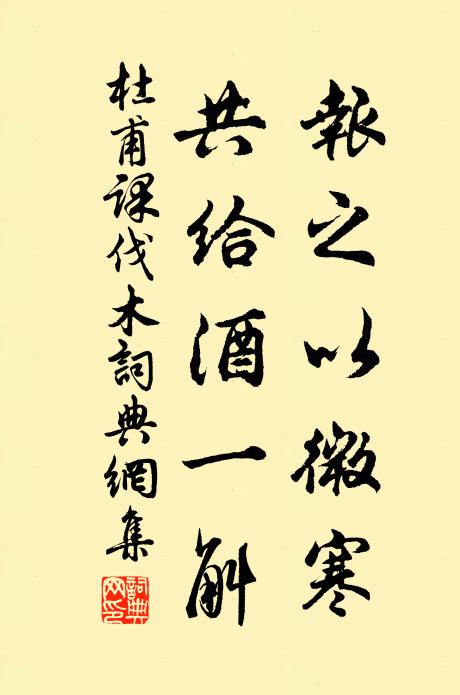 報之以微寒
共給酒一斛
杜甫課伐木詞典網集
詞典網印